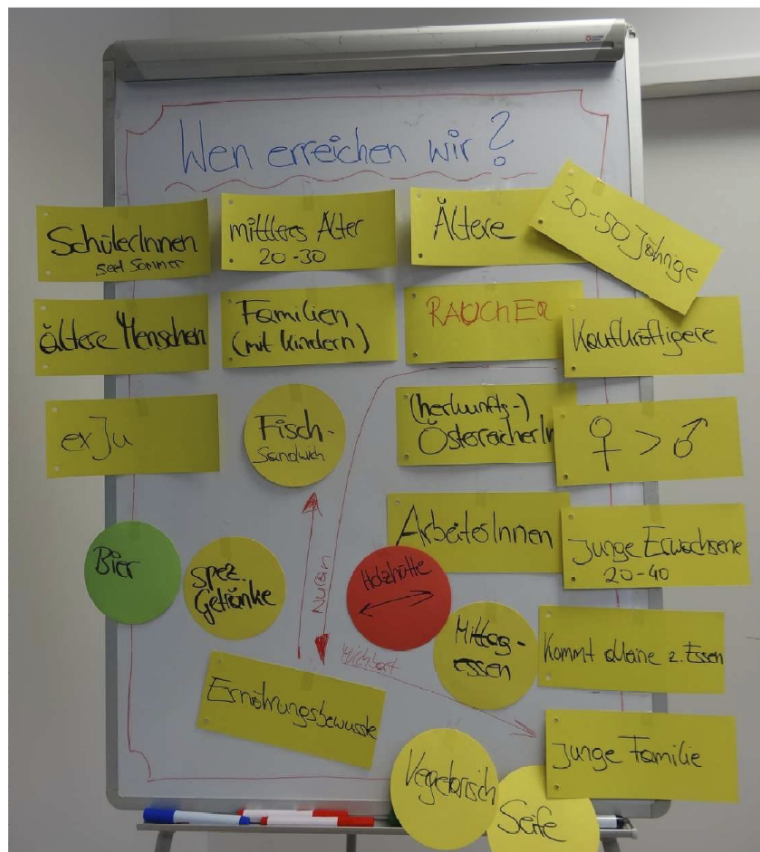 Wen erreichen wir?
SchülerInnen
seit Sommer
mittlers Alter
20-30
Ältere
30-50 Jährige
ältere Menschen
Familien
(mit Kindern)
RAUCHER
Kaufkräftigere
ex Ju
Fisch-
Sandwich
(herkunfts-)
ÖstereicherIn
♀ > ♂
ArbeiterInnen
Junge Erwachsene
20-40
Bier
spez.
Getränke
Holzhütte
Mittag-
essen
Kommt alleine z. Essen
Ernährungsbewusste
junge Familie
Vegetarisch
Seife